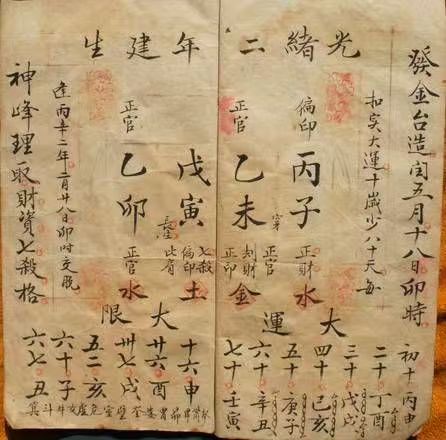 光緒二年建生
發金台造闰五月十八日卯時
扣实大運十歲少八十天每
逢丙辛之年二月廿八日卯时交脱
神峰理取財資七殺格
偏印
丙子
正財
水
正官
乙未
正官
刦財
正印
金
戊寅
七殺
偏印
比肩
土
正官
乙卯
正官
水
大運
初十丙申
二十丁酉
三十戊戌
四十己亥
五十庚子
六十辛丑
七十壬寅
大限
十六申
廿六酉
卅七戌
五二亥
六十子
六七丑